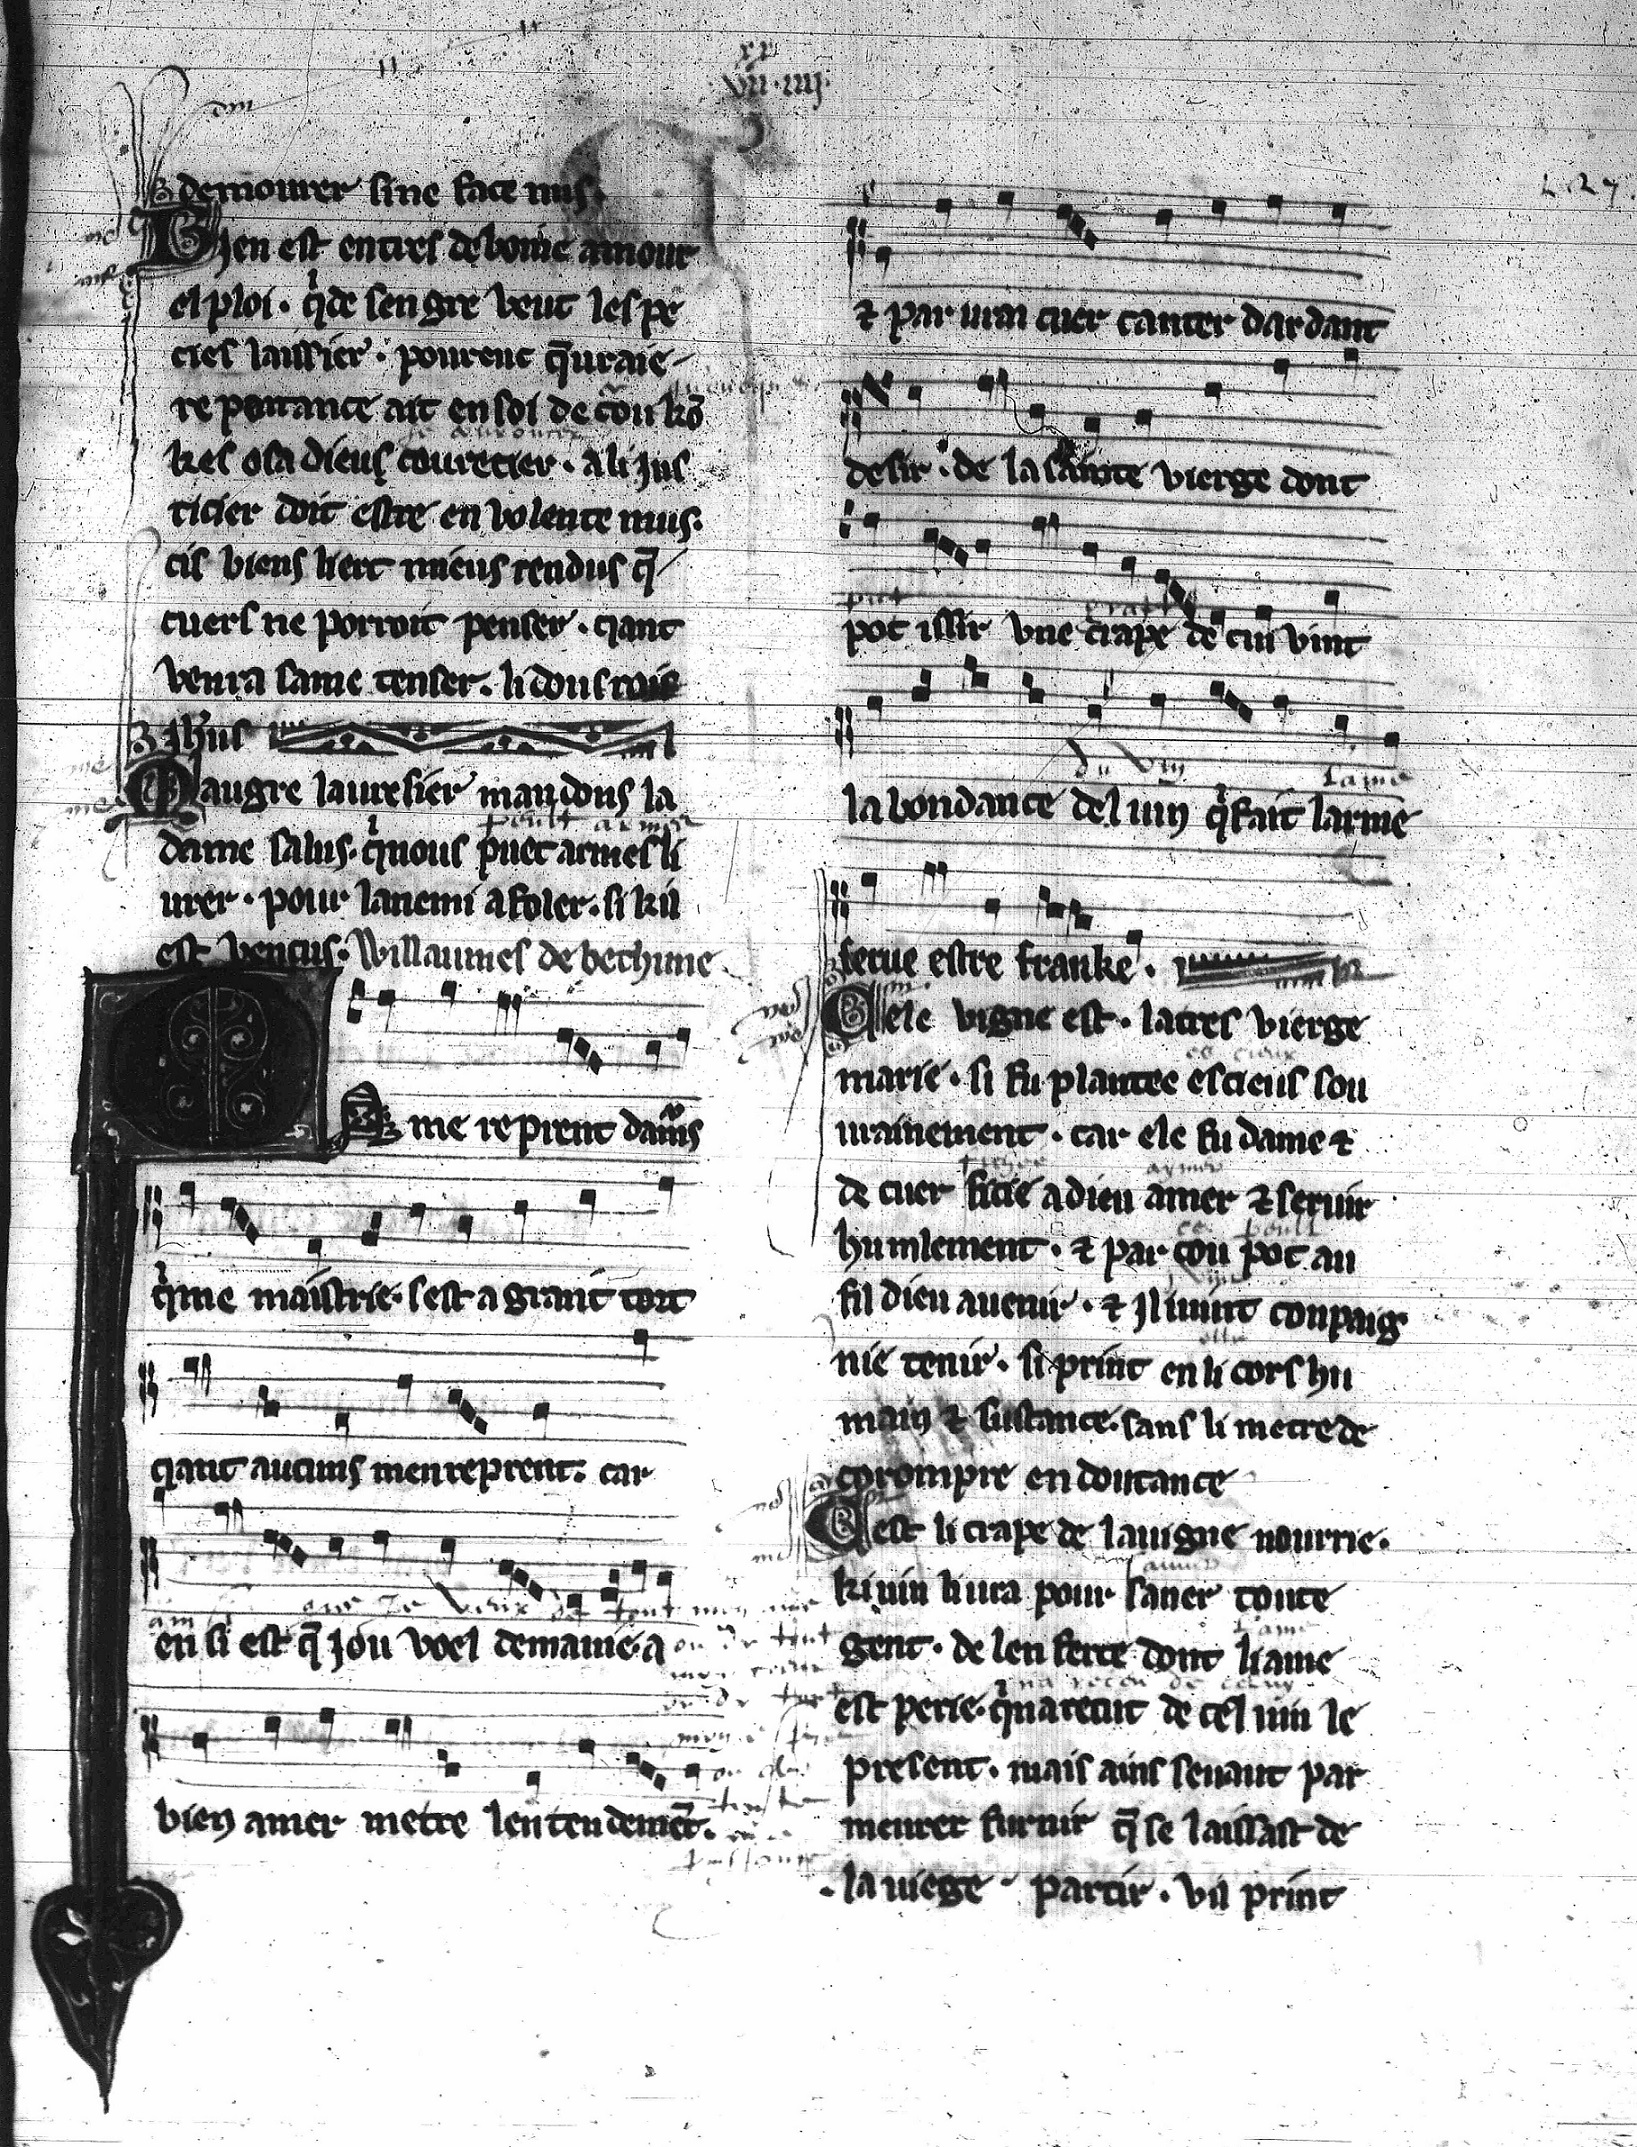 xx
vii · iiij
127
demourer sine face mis.
Bien est entres de bonne amour
el ploi · q̓ de sen gre veut les pe
cies laissier · poureuc q̄ uraie
repentance ait en soi de cou kō
kes osa dieus courecier · a li jus
ticier doit estre en volente mus.
cis biens liert mieus rendus q̄
cuers ne porroit penser · qant
venra same tenser · li dous rois
ihus
Maugre lauresier mandons la
dame salus · q̓ nous puet armes li
urer · pour lanemi afoler · si kil
est vencus · Willaumes de bethune
me reprent damors
q̓ me maistrie · sest a grant tort
qant aucuns men reprent · car
ensi est q̄ jou voel demaine · a
bien amer metre lentendemēt.
⁊ par urai cuer canter dardant
desir · de la sainte vierge dont
pot issir vne crape de cui vint
labondance del uin q̓ fait larme
serue estre franke ·
Cele vigne est · la tres vierge
marie · si fu plantee es cieus sou
urainement · car ele fu dame ⁊
de cuer ficie a dieu amer ⁊ seruir
humlement · ⁊ par cou pot au
fil dieu auenir · ⁊ il i uint conpaig
nie tenir · si print en li cors hu
main ⁊ sustance · sans li metre de
corompre en doutance
Cest li crape de la uigne nourrie ·
ki uin liura pour saner toute
gent · de lenferte dont li ame
est perie · q̓ na recut de cel uin le
present · mais ains se uaut par
meurer furnir q̄ se laissast de
la uiege partir · vil print